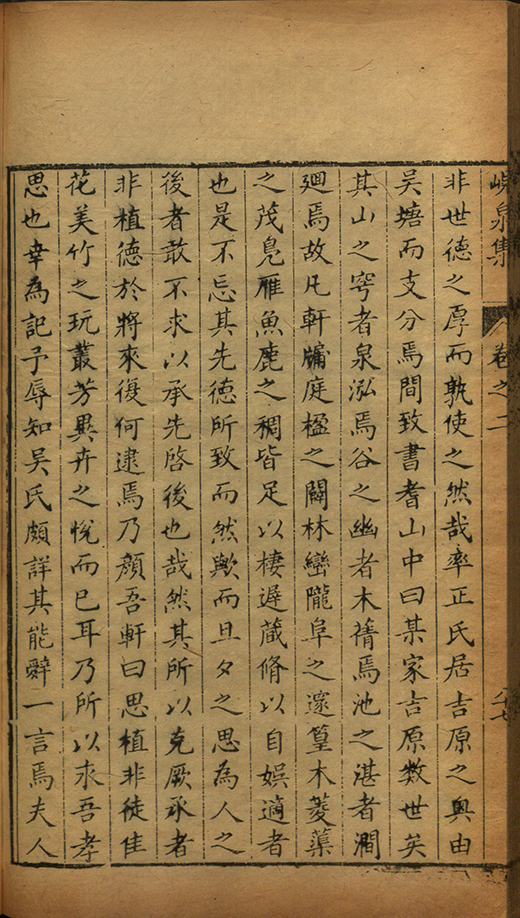 峴泉集 卷之二 八十七
非世德之厚而孰使之然哉率正氏居吉原之奥由
吴塘而支分焉間致書耆山中曰某家吉原数世矣
其山之穹者泉泓焉谷之幽者木蒨焉池之湛者澗
廻焉故凡軒牖庭楹之闢林巒隴阜之邃篁木菱蕖
之茂鳬雁魚鹿之稠皆足以棲遲蔵脩以自娱適者
也是不忘其先德所致而然歟而旦夕之思為人之
後者敢不求以承先啓後也哉然其所以克厥承者
非植德於將來復何逮焉乃顔吾軒曰思植非徒佳
花美竹之玩叢芳異卉之悅而已耳乃所以求吾孝
思也幸為記予辱知吴氏頗詳其能辭一言焉夫人